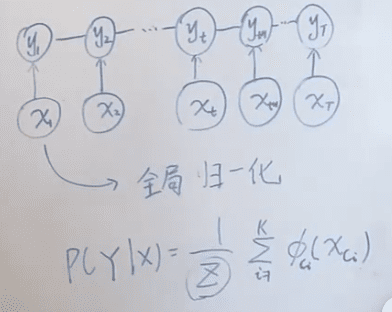 y₁ y₂ ... y_t y_{t+1} y_T
x₁ x₂ x_t x_{t+1} x_T
全局 归一化
P(Y|X) = 1/Z Σ_{i=1}^{K} φ_{ci}(x_{ci})